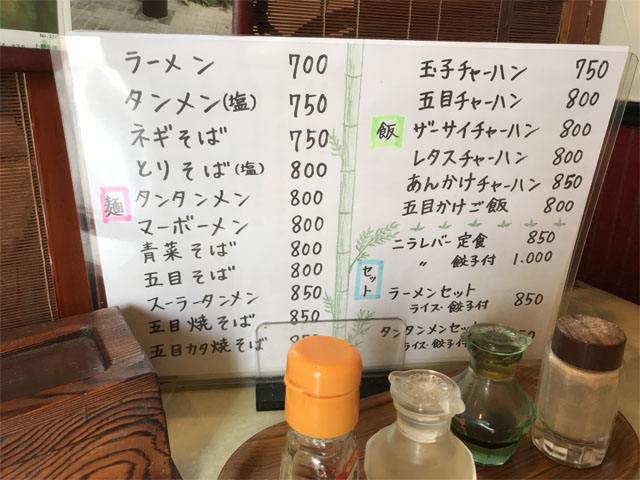 ラーメン 700
タンメン(塩) 750
ネギそば 750
とりそば(塩) 800
麺
タンタンメン 800
マーボーメン 800
青菜そば 800
五目そば 800
スーラータンメン 850
五目焼そば 850
五目カタ焼そば
玉子チャーハン 750
五目チャーハン 800
飯
ザーサイチャーハン 800
レタスチャーハン 800
あんかけチャーハン 850
五目かけご飯 800
セット
ニラレバー定食 850
〃 餃子付 1.000
ラーメンセット 850
ライス・餃子付
タンタンメンセット
ライス・餃子付